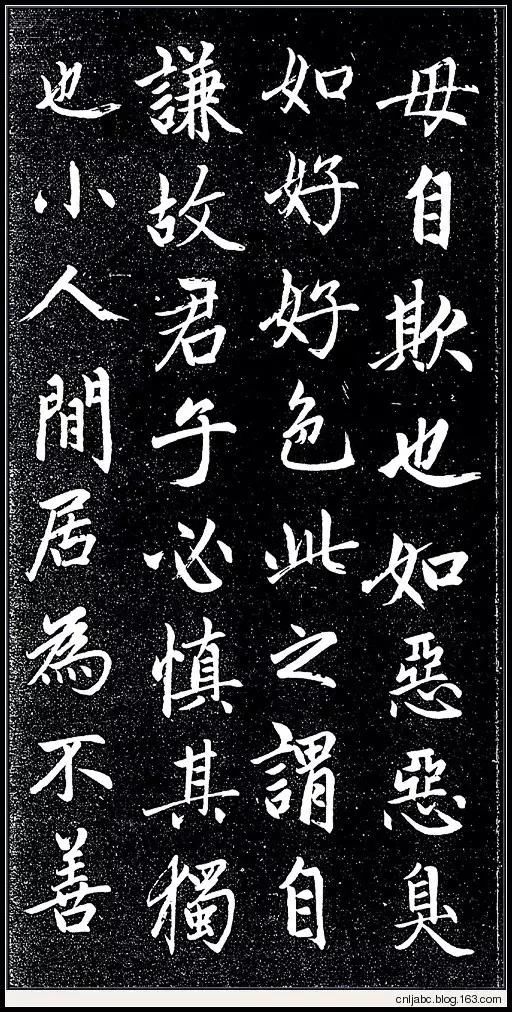 毋自欺也如惡惡臭
如好好色此之謂自
謙故君子必慎其獨
也小人閒居為不善
cnljabc.blog.163.com